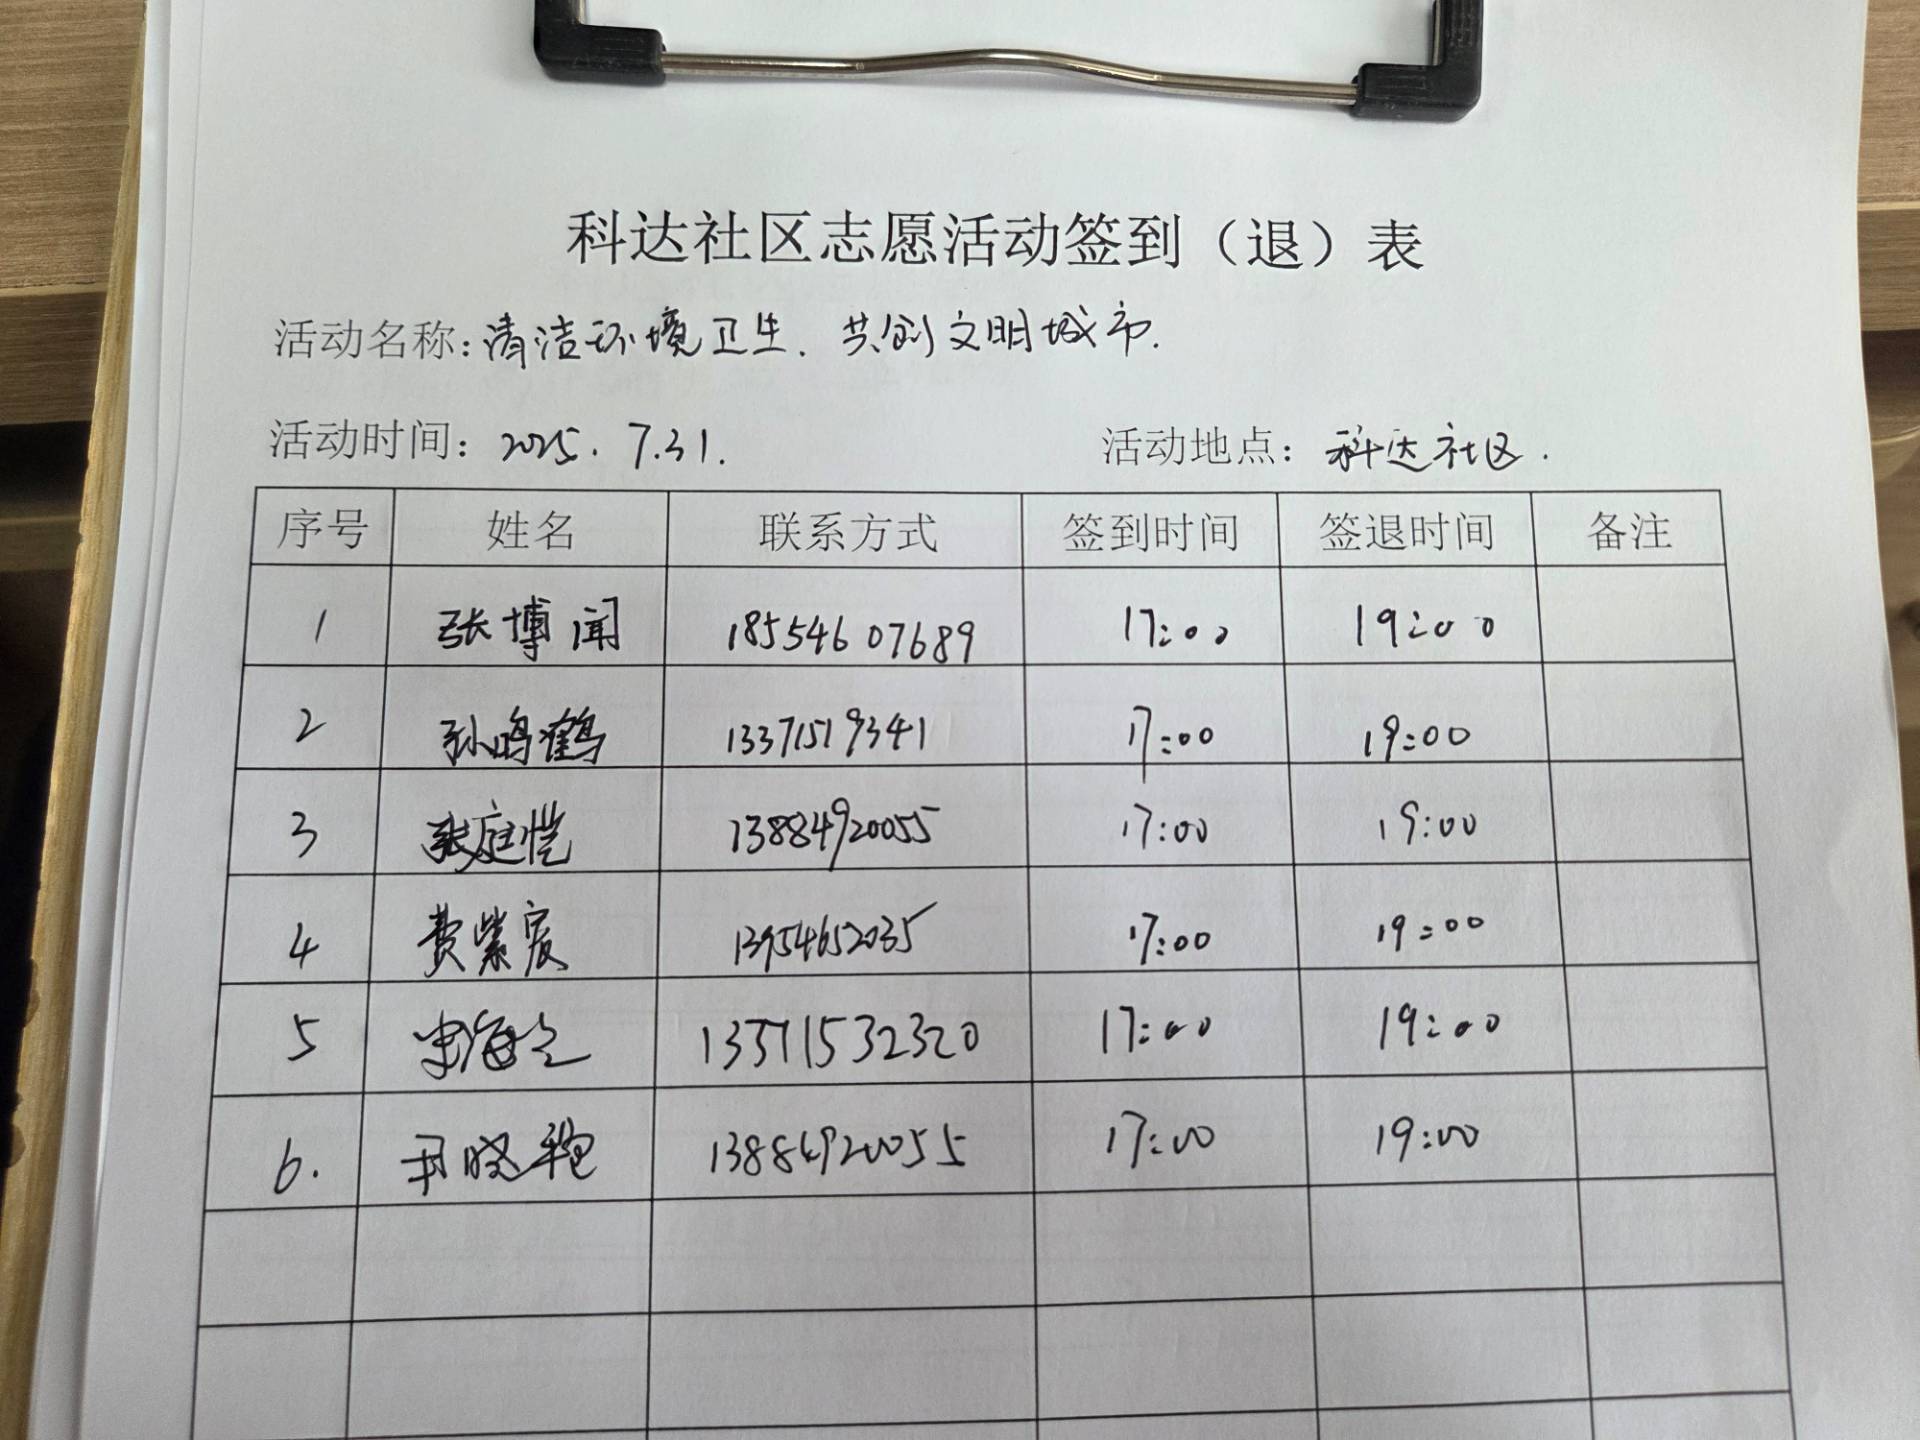 科达社区志愿活动签到（退）表
活动名称：清洁环境卫生．共创文明城市．
活动时间：2025．7.31． 活动地点：科达社区．
序号 姓名 联系方式 签到时间 签退时间 备注
1 张博闻 18554607689 17:00 19:00
2 孙鸣鹤 13371519341 17:00 19:00
3 张庭恺 13884920055 17:00 19:00
4 费紫宸 13954652035 17:00 19:00
5 13371532320 17:00 19:00
6. 13884920055 17:00 19:00